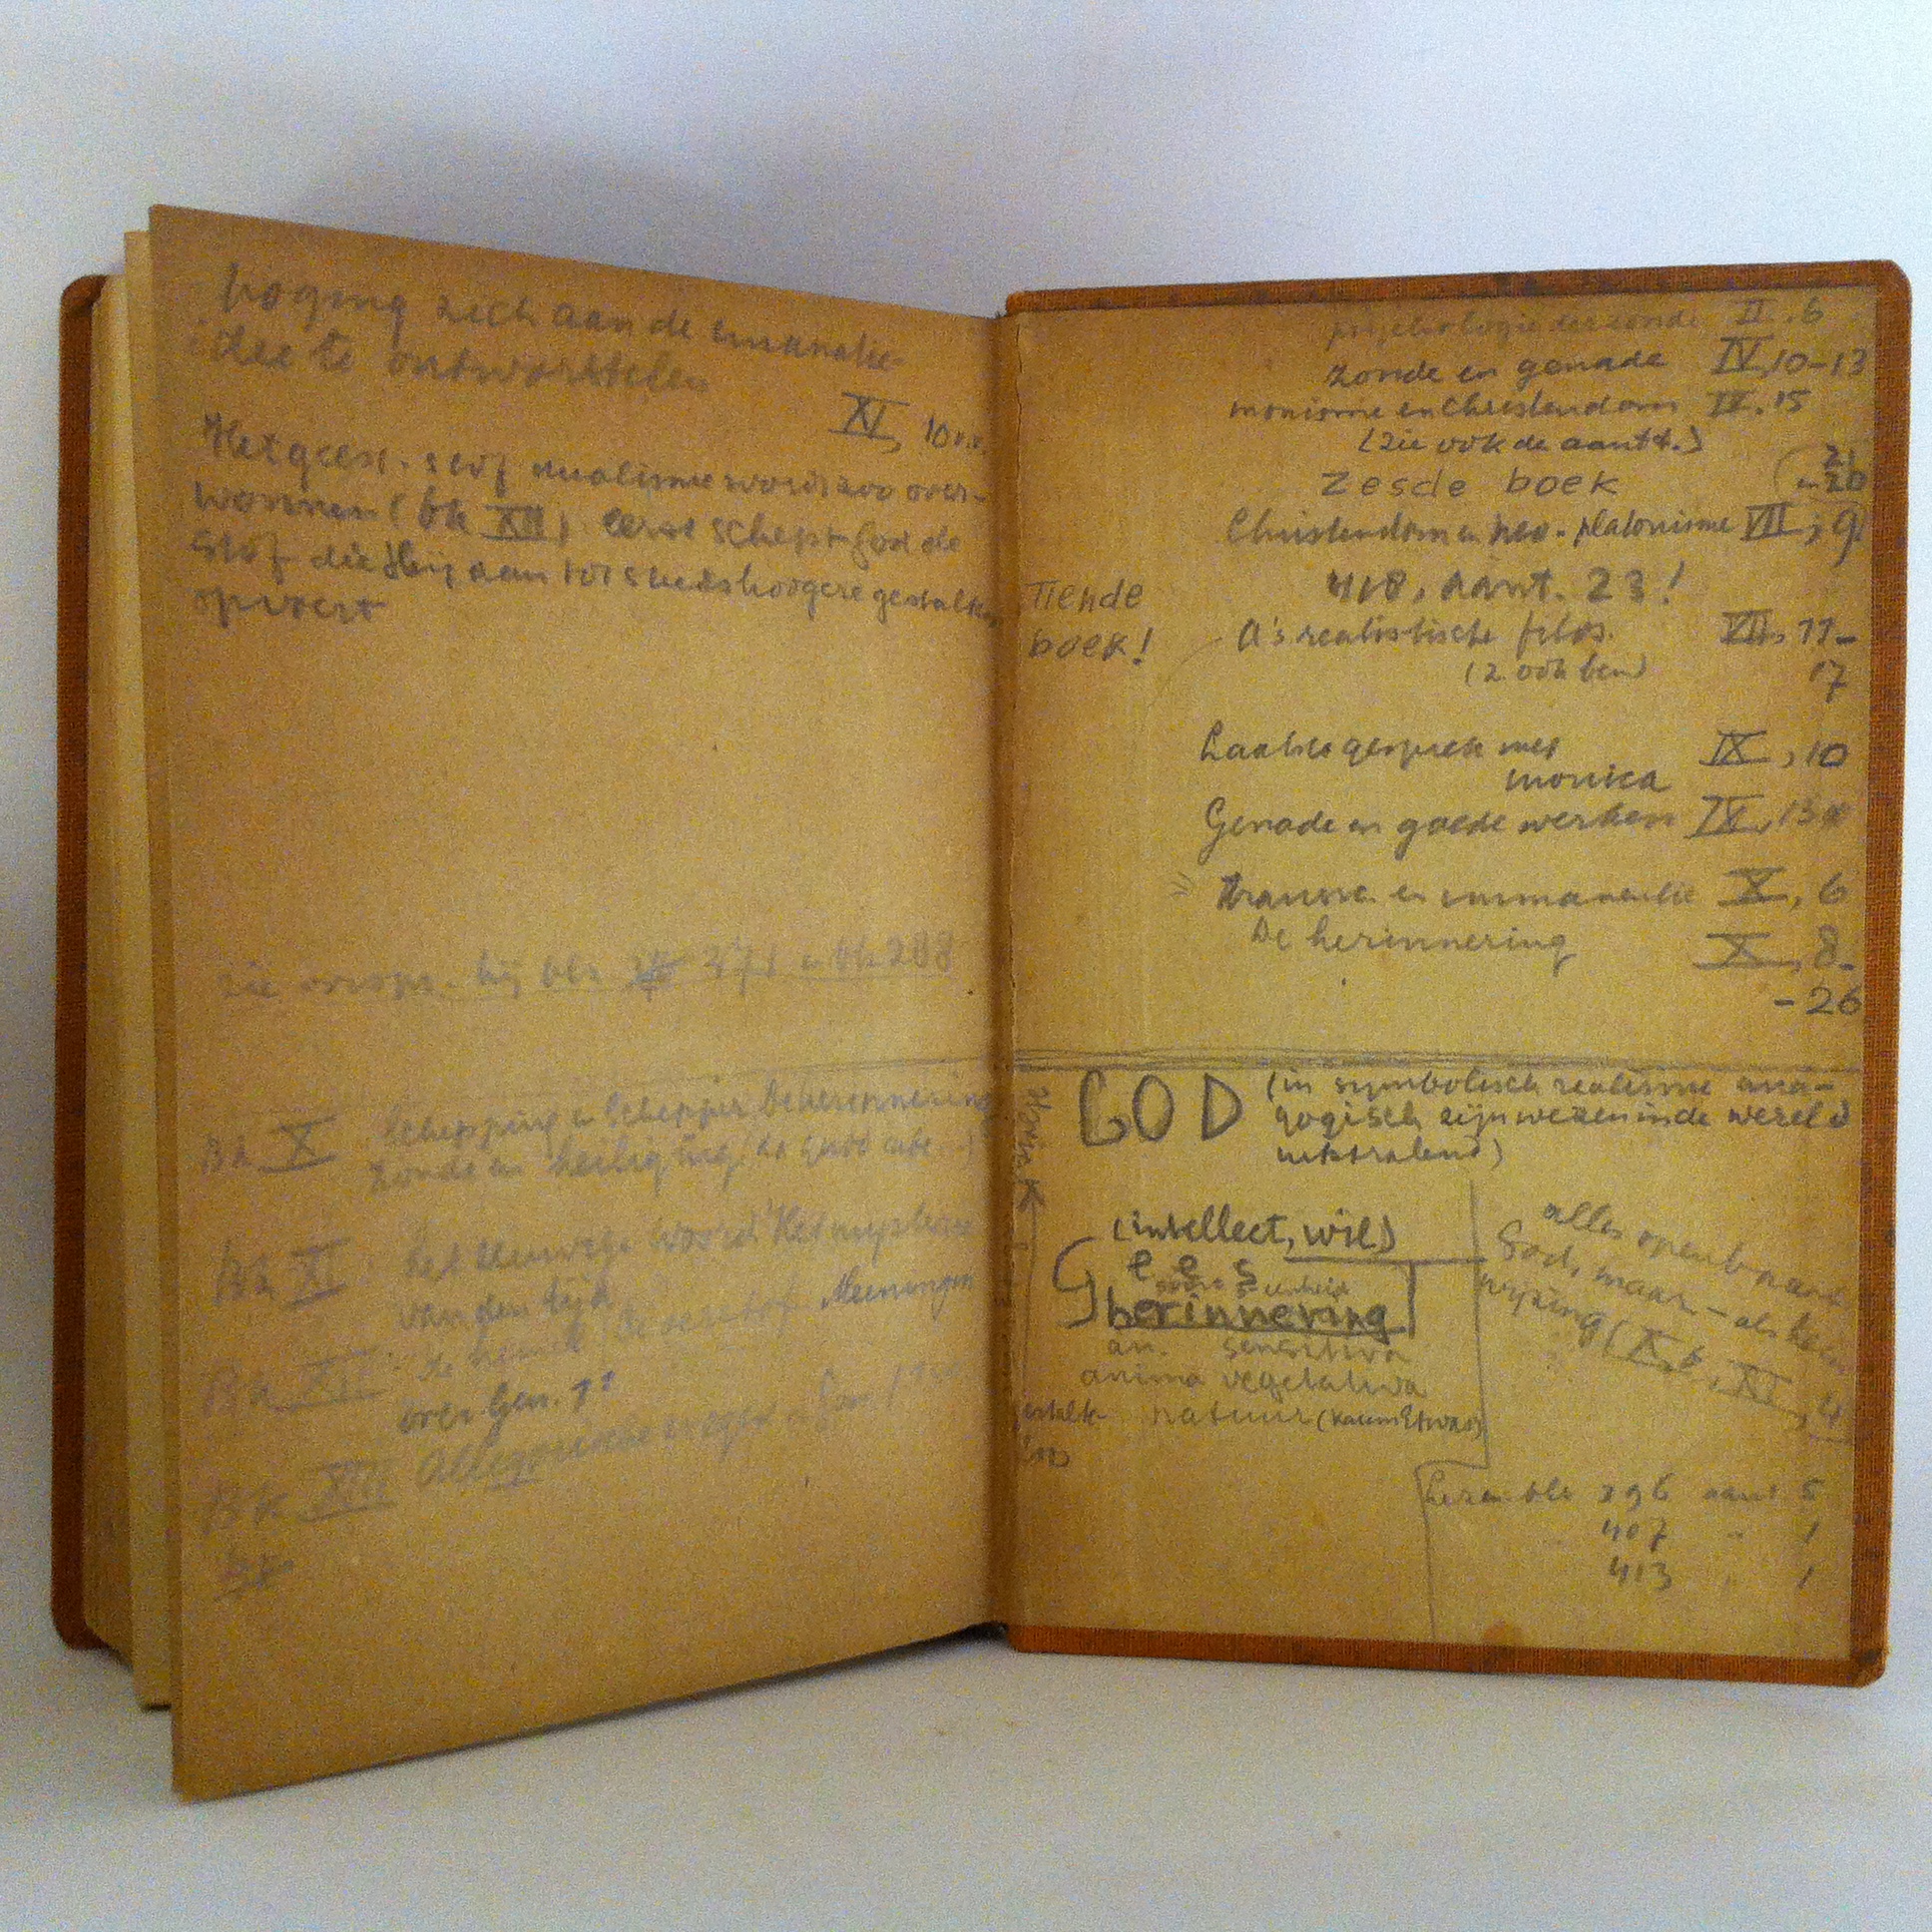 poging zich aan de emanatie-
idee te ontworstelen
XI, 10 v.v.
Het geest-stof dualisme wordt zoo over-
wonnen (bk XII) eerst schept God de
stof die Hij dan tot steeds hoogere gestalten
opvoert
zie bij blz 371 en blz 288
Bk X Schepping en Schepper De herinnering
Zonde en heiliging
Bk XI het eeuwige woord Het mysterie
van den tijd
Bk XII de hemel De oerstof Meeningen
over Gen. 1¹
Bk XIII Allegorische
psychologie der zonde II. 6
zonde en genade IV, 10-13
monisme en Christendom IV. 15
(zie ook de aantt.)
zesde boek
21
en 20
Christendom en neo-platonisme VII, 9
418, aant. 23!
Tiende
boek!
A's realistische filos. VII, 11-
17
(z. ook ben)
Laatste gesprek met IX, 10
monica
Genade en goede werken IX, 13
Transc. en immanentie X, 6
De herinnering X, 8-
-26
GOD (in symbolisch realisme ana-
gogisch zijn wezen in de wereld
uitstralend)
(intellect, wil)
herinnering
an. sensitiva
anima vegetativa
natuur (kaum Etwas)
alles openbaart
God, maar - als heen
wijzing (X, 6, XI, 4
Lezen blz 396 aant 5
407 " 1
413 " 1